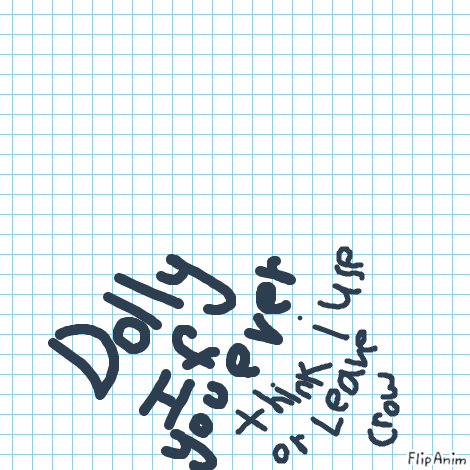 Dolly
If
you ever
think I use
or Leave
crow
FlipAnim